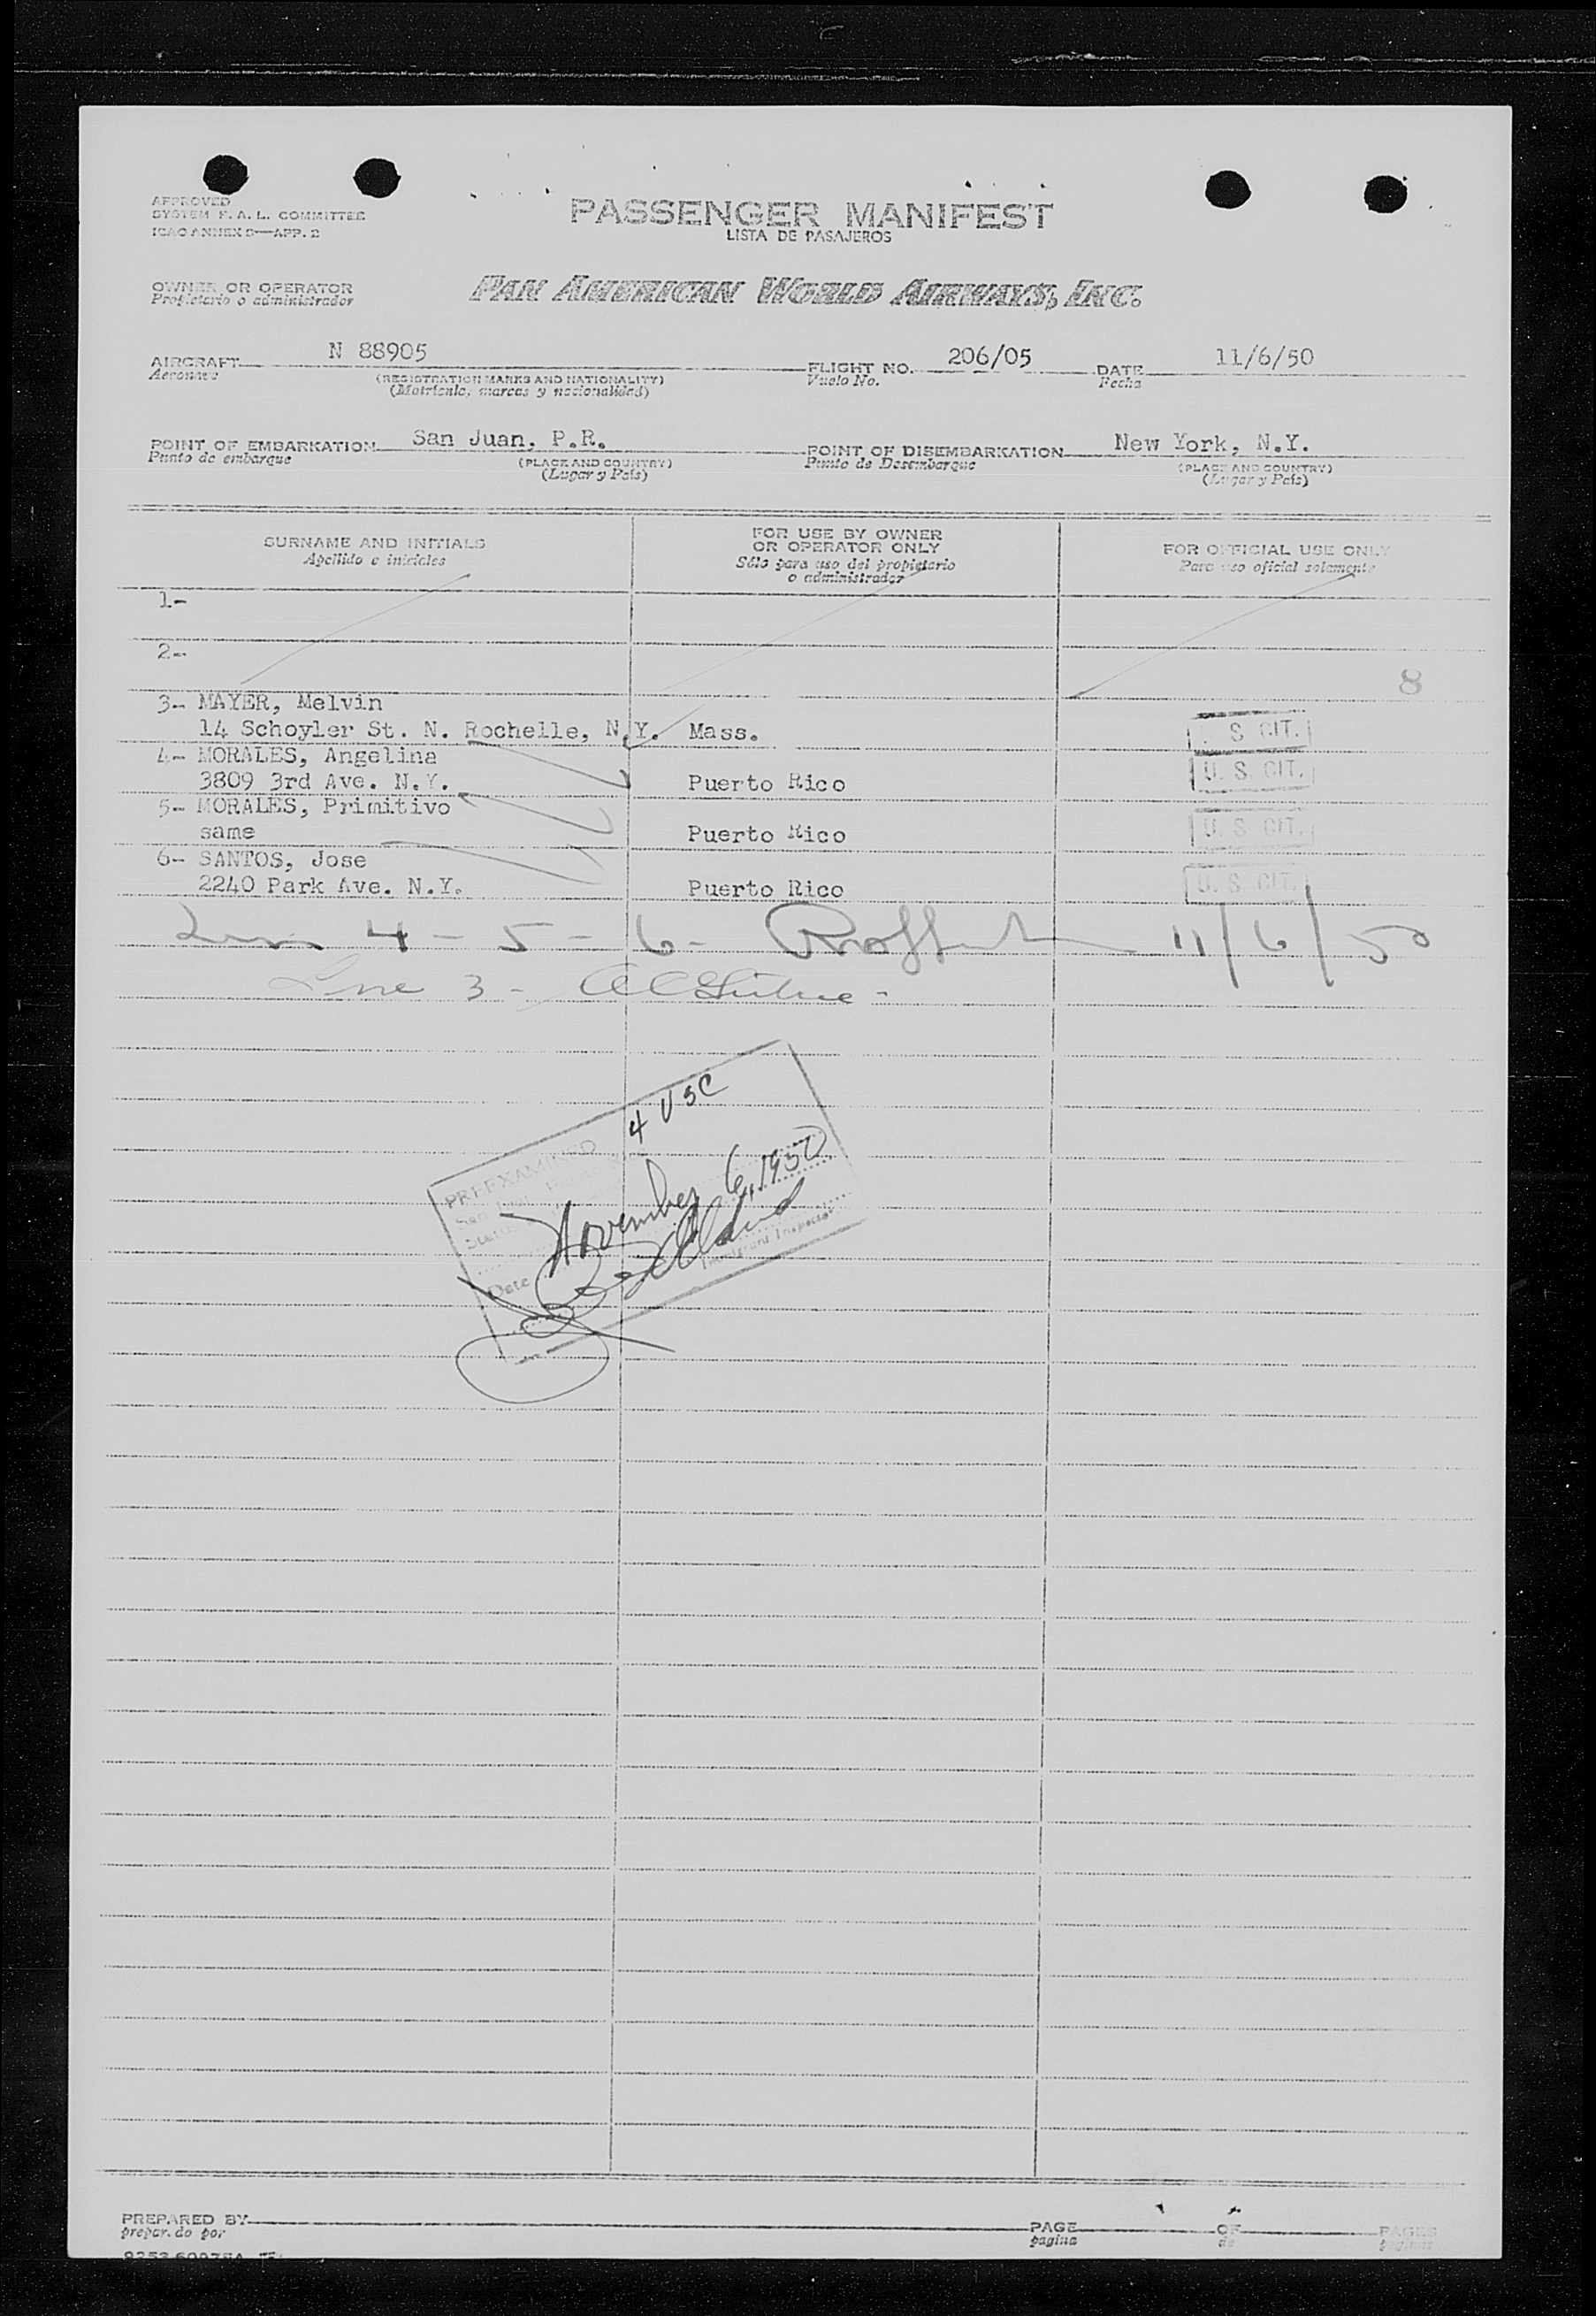 APPROVED
SYSTEM F. A. L. COMMITTEE
ICAO ANNEX 9—APP. 2
PASSENGER MANIFEST
LISTA DE PASAJEROS
OWNER OR OPERATOR
Propietario o administrador
PAN AMERICAN WORLD AIRWAYS, INC.
AIRCRAFT N 88905 FLIGHT NO. 206/05 DATE 11/6/50
Aeronave (REGISTRATION MARKS AND NATIONALITY) Vuelo No. Fecha
(Matrícula, marcas y nacionalidad)
POINT OF EMBARKATION San Juan, P.R. POINT OF DISEMBARKATION New York, N.Y.
Punto de embarque (PLACE AND COUNTRY) Punto de Desembarque (PLACE AND COUNTRY)
(Lugar y País) (Lugar y País)
SURNAME AND INITIALS
Apellido e iniciales
FOR USE BY OWNER
OR OPERATOR ONLY
Sólo para uso del propietario
o administrador
FOR OFFICIAL USE ONLY
Para uso oficial solamente
1-
2-
8
3- MAYER, Melvin
14 Schoyler St. N. Rochelle, N.Y. Mass. S CIT.
4- MORALES, Angelina
3809 3rd Ave. N.Y. Puerto Rico U. S. CIT.
5- MORALES, Primitivo
same Puerto Rico U. S. CIT.
6- SANTOS, Jose
2240 Park Ave. N.Y. Puerto Rico U. S. CIT.
4 - 5 - 6 - 11/6/50
Line 3 -
4 USC
PREEXAMINED
November 6, 1950
Date
Immigrant Inspector
PREPARED BY PAGE OF PAGES
preparado por pagina de paginas